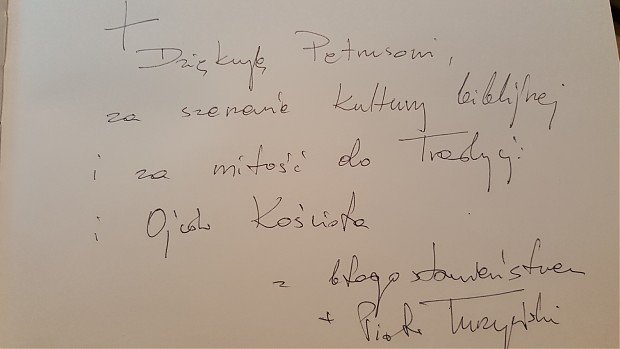 +
Dziękuję Petrusowi,
za szerzenie kultury biblijnej
i za miłość do Tradycji
i Ojców Kościoła
z błogosławieństwem
+ Piotr Turzyński